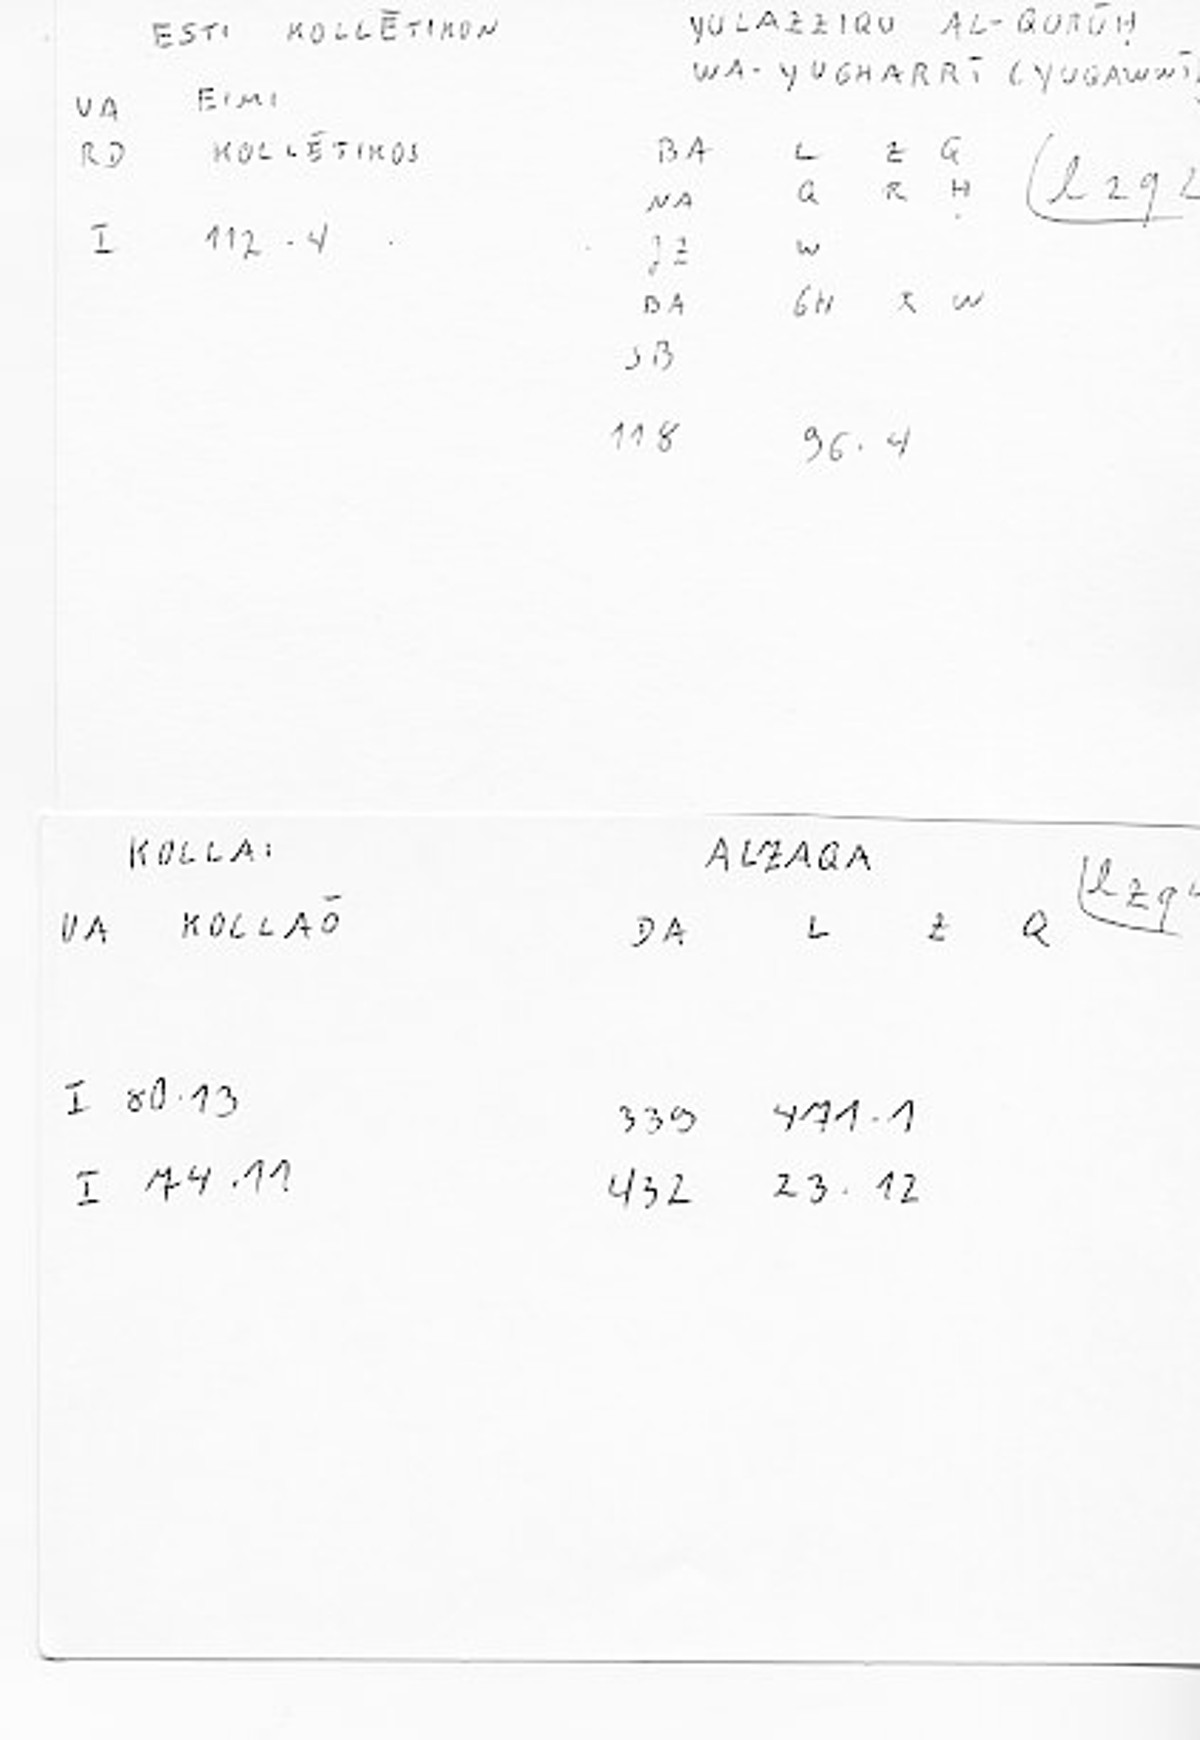 ESTI KOLLĒTIKON YULAZZIQU AL-QURŪḤ
WA-YUGHARRĪ (YUQAWWĪ
VA EIMI
RD KOLLĒTIKOS BA L Z Q (lzq
NA Q R Ḥ
I 112.4 JZ W
BA GH R W
JB
118 96.4
KOLLAI ALZAQA
VA KOLLAŌ DA L Z Q (lzq
I 80.13 339 471.1
I 74.11 432 23.12